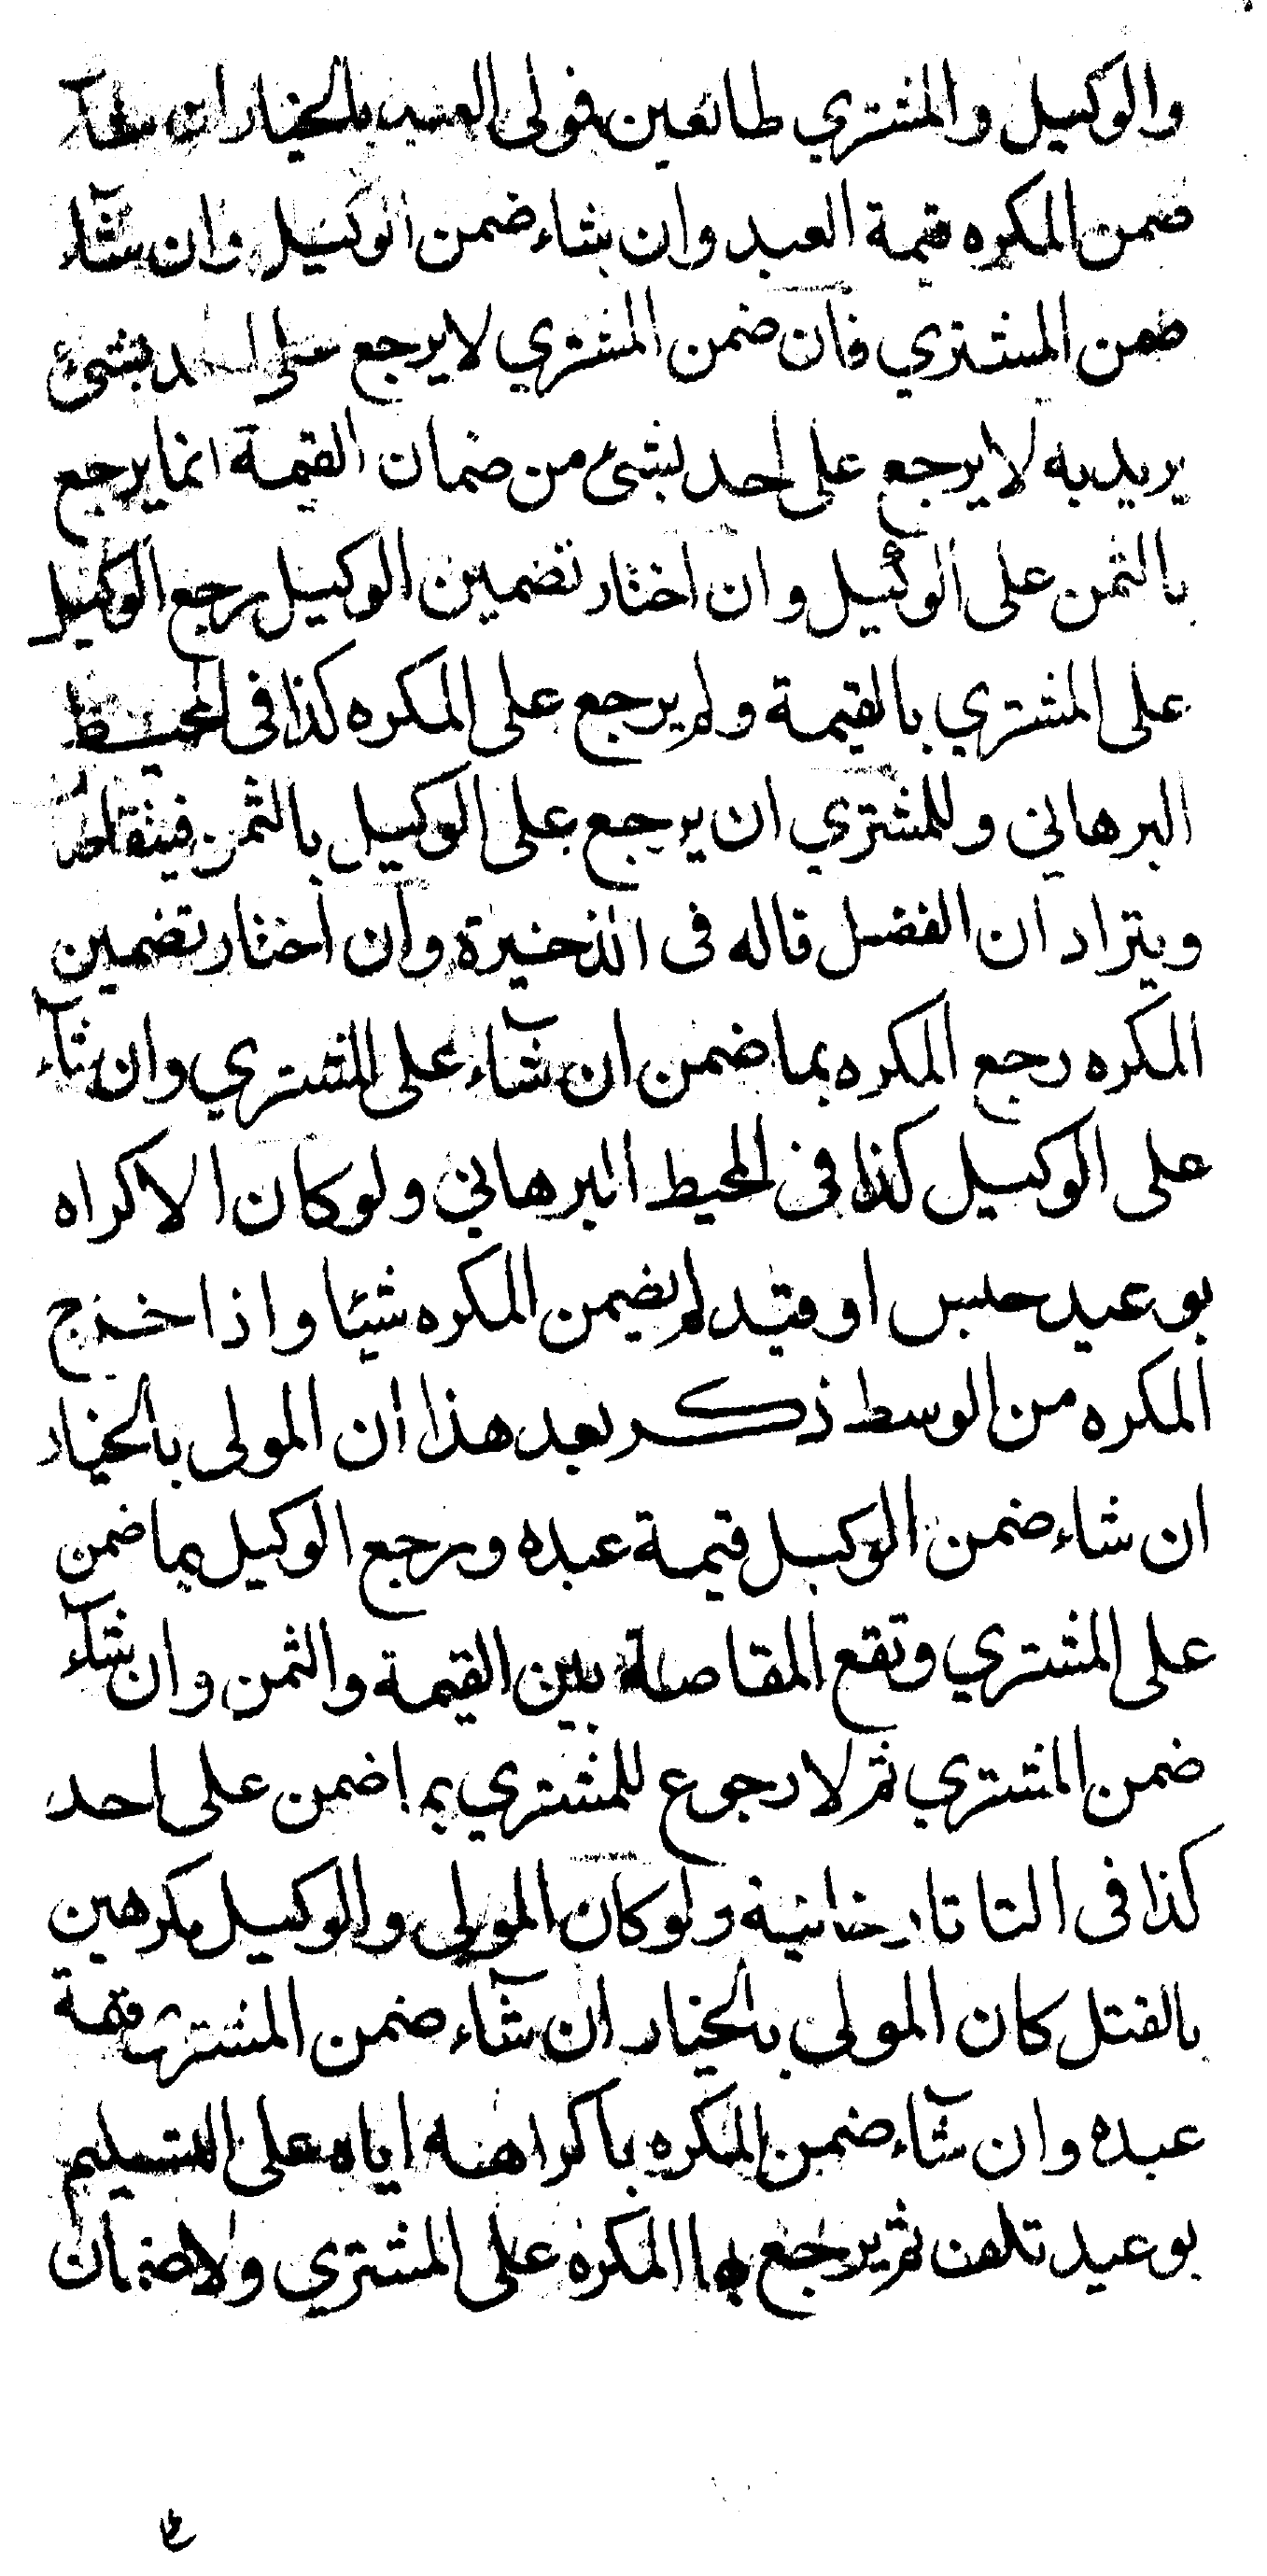 والوكيل والمشترى طائعين فولى العبد بالخيار ان شاء
ضمن المكره قيمة العبد وان شاء ضمن الوكيل وان شاء
ضمن المشتري فان ضمن المشتري لا يرجع على احد بشئ
يريد به لا يرجع على احد بشئ من ضمان القيمة انما يرجع
بالثمن على الوكيل وان اختار تضمين الوكيل رجع الوكيل
على المشتري بالقيمة ولم يرجع على المكره كذا فى المحيط
البرهاني وللمشتري ان يرجع على الوكيل بالثمن فيتقاصا
ويترادان الفضل قاله فى الذخيرة وان اختار تضمين
المكره رجع المكره بما ضمن ان شآء على المشتري وان شآء
على الوكيل كذا فى المحيط البرهاني ولو كان الاكراه
بوعيد حبس او قيد لم يضمن المكره شيئا واذا خرج
المكره من الوسط ذكر بعد هذا ان المولى بالخيار
ان شاء ضمن الوكيل قيمة عبده ورجع الوكيل بما ضمن
على المشتري وتقع المقاصة بين القيمة والثمن وان شآء
ضمن المشتري ثم لا رجوع للمشتري بما ضمن على احد
كذا فى التاتارخانية ولو كان المولى والوكيل مكرهين
بالقتل كان المولى بالخيار ان شآء ضمن المشترى قيمة
عبده وان شآء ضمن المكره باكراهه اياه على التسليم
بوعيد تلف ثم يرجع بها المكره على المشتري ولا ضمان